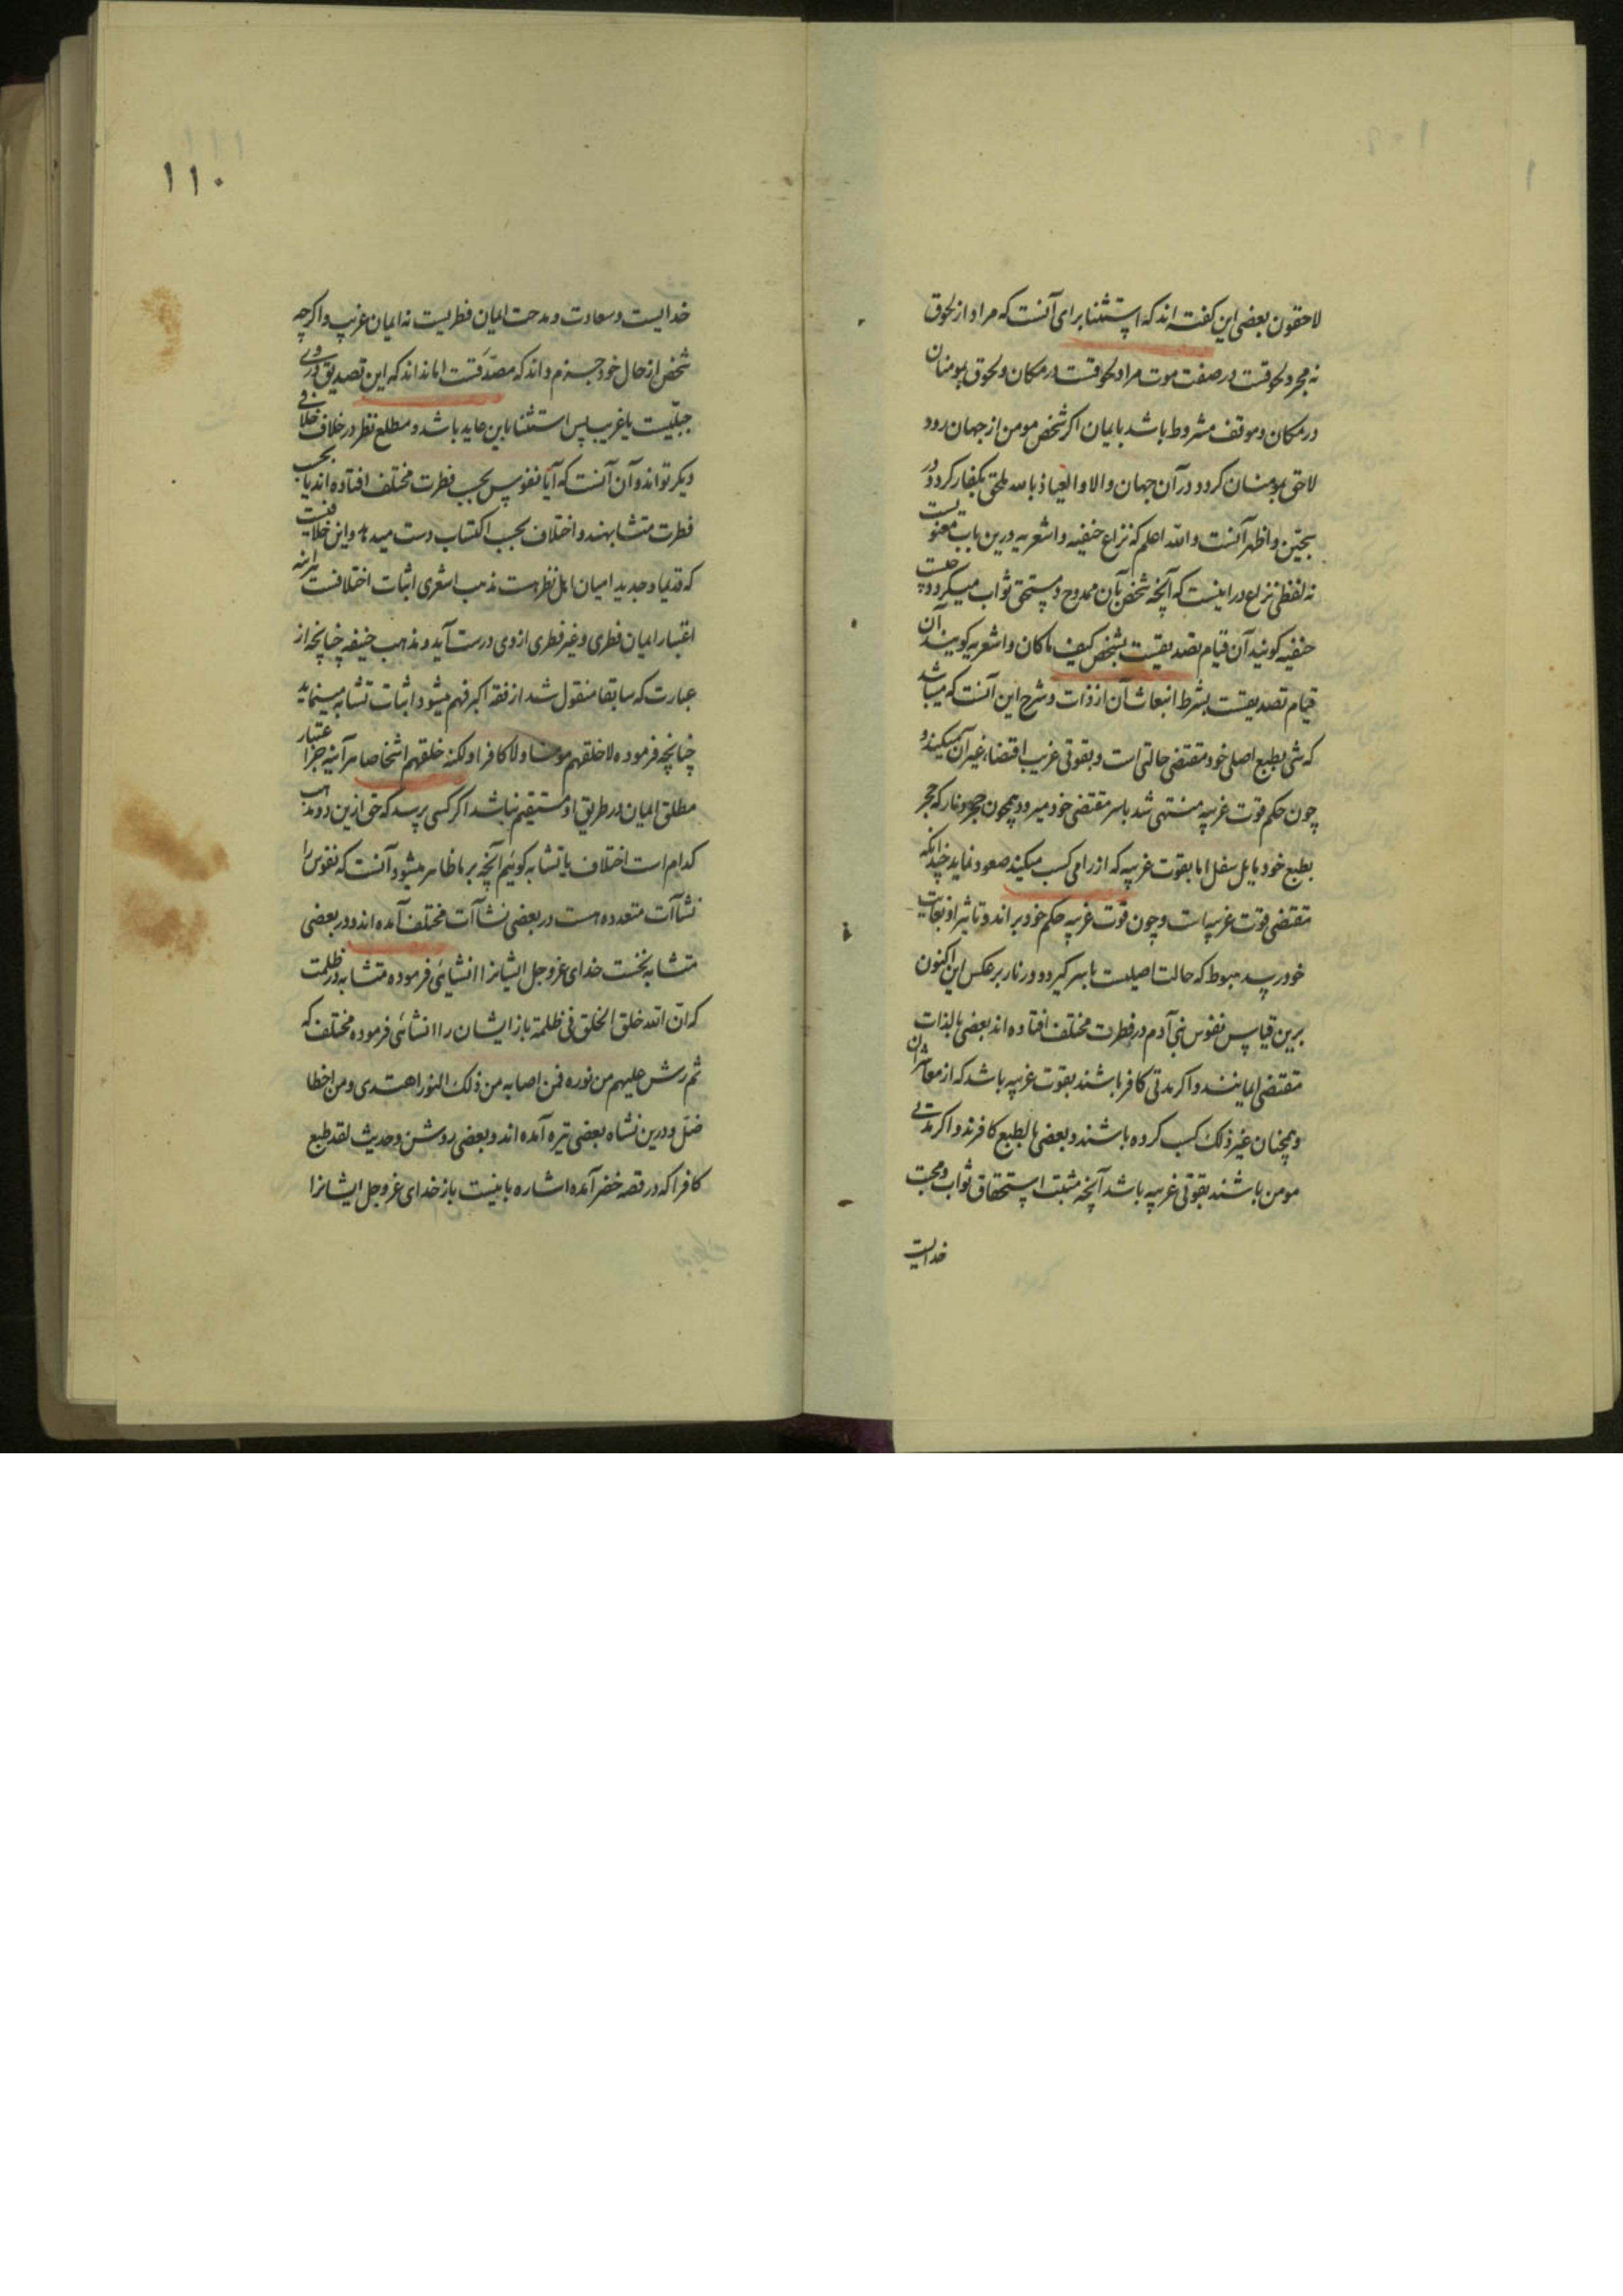 لاحقون بعضی این کفته اند که استثنا برای آنست که مراد از لحوق
نه مجرد لحوقست در صفت موت مراد لحوقست در مکان و لحوق بمومنان
در مکان و موقف مشروط باشد بایمان اکر شخص مومن از جهان رود
لاحق بمومنان کردد در آن جهان والا والعیاذ بالله ملحق بکفار کردد در
سجین و اظهر آنست والله اعلم که نزاع حنفیه و اشعریه درین باب معنویست
نه لفظی نزاع در اینست که آنچه شخص بآن ممدوح و مستحق ثواب میکردد چیست
حنفیه کویند آن قیام تصدیقیست بشخص کیف ماکان و اشعریه کویند آن
قیام تصدیقیست بشرط انبعاث آن از ذات و شرح این آنست که میباشد
که شی بطبع اصلی خود مقتضی حالتی است و بقوتی غریب اقتضاء غیر آن میکند و
چون حکم قوت غریبه منتهی شد باسر مقتضی خود میرود همچون حجر و نار که حجر
بطبع خود مایل بسفل اما بقوت غریبه که از رامی کسب میکند صعود نماید چندانکه
مقتضی قوت غریبه است و چون قوت غریبه حکم خود براند و تاثیر او بغایت
خود رسد هبوط که حالت اصلیست باسر کیرد و در نار بر عکس این اکنون
برین قیاس نفوس بنی آدم در فطرت مختلف افتاده اند بعضی بالذات
مقتضی ایمانند و اکر مدتی کافر باشند بقوت غریبه باشد که از معاشران
و همچنان غیر ذلک کسب کرده باشند و بعضی بالطبع کافرند و اکر مدتی
مومن باشند بقوتی غریبه باشد آنچه مثبت استحقاق ثواب و محبت
خدایست
۱۱۰
خدایست و سعادت و مدحت ایمان فطریست نه ایمان غریب و اکرچه
شخص از حال خود جزم داند که مصدقست اما نداند که این تصدیق از وی
جبلیست یا غریب پس استثنا باین عاید باشد و مطلع نظر در خلاف خلافی
دیکر تواند و آن آنست که آیا نفوس بحسب فطرت مختلف افتاده اند یا بحسب
فطرت متشابهند و اختلاف بحسب اکتساب دست میدهد و این خلافیست
که قدیما و جدیدا میان اهل نظر هست مذهب اشعری اثبات اختلافست هرآینه
اعتبار ایمان فطری و غیر فطری از وی درست آید و مذهب حنیفه چنانچه از
عبارت که سابقا منقول شد از فقه اکبر فهم میشود اثبات تشابه مینماید
چنانچه فرموده لا خلقهم مومنا ولا کافرا ولکنه خلقهم اشخاصا هرآینه جز اعتبار
مطلق ایمان در طریق او مستقیم نباشد اکر کسی پرسد که حق ازین دو مذهب
کدام است اختلاف یا تشابه کوئیم آنچه بر ما ظاهر میشود آنست که نفوس را
نشاآت متعدده هست در بعضی نشاآت مختلف آمده اند و در بعضی
متشابه نخست خدای عزوجل ایشانرا انشایی فرموده متشابه در ظلمت
که ان الله خلق الخلق فی ظلمة باز ایشان را انشائی فرموده مختلف که
ثم رش علیهم من نوره فمن اصابه من ذلک النور اهتدی ومن اخطا
ضل و درین نشاه بعضی تیره آمده اند و بعضی روشن و حدیث لقد طبع
کافرا که در قصه خضر آمده اشاره باینست باز خدای عزوجل ایشانرا